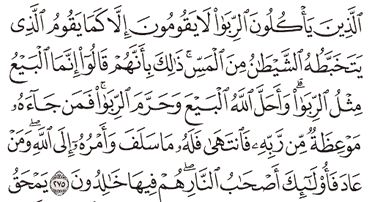 ٱلَّذِينَ يَأۡكُلُونَ ٱلرِّبَوٰاْ لَا يَقُومُونَ إِلَّا كَمَا يَقُومُ ٱلَّذِي
يَتَخَبَّطُهُ ٱلشَّيۡطَٰنُ مِنَ ٱلۡمَسِّۚ ذَٰلِكَ بِأَنَّهُمۡ قَالُوٓاْ إِنَّمَا ٱلۡبَيۡعُ
مِثۡلُ ٱلرِّبَوٰاْۗ وَأَحَلَّ ٱللَّهُ ٱلۡبَيۡعَ وَحَرَّمَ ٱلرِّبَوٰاْۚ فَمَن جَآءَهُۥ
مَوۡعِظَةٞ مِّن رَّبِّهِۦ فَٱنتَهَىٰ فَلَهُۥ مَا سَلَفَ وَأَمۡرُهُۥٓ إِلَى ٱللَّهِۖ وَمَنۡ
عَادَ فَأُوْلَٰٓئِكَ أَصۡحَٰبُ ٱلنَّارِۖ هُمۡ فِيهَا خَٰلِدُونَ ٢٧٥ يَمۡحَقُ